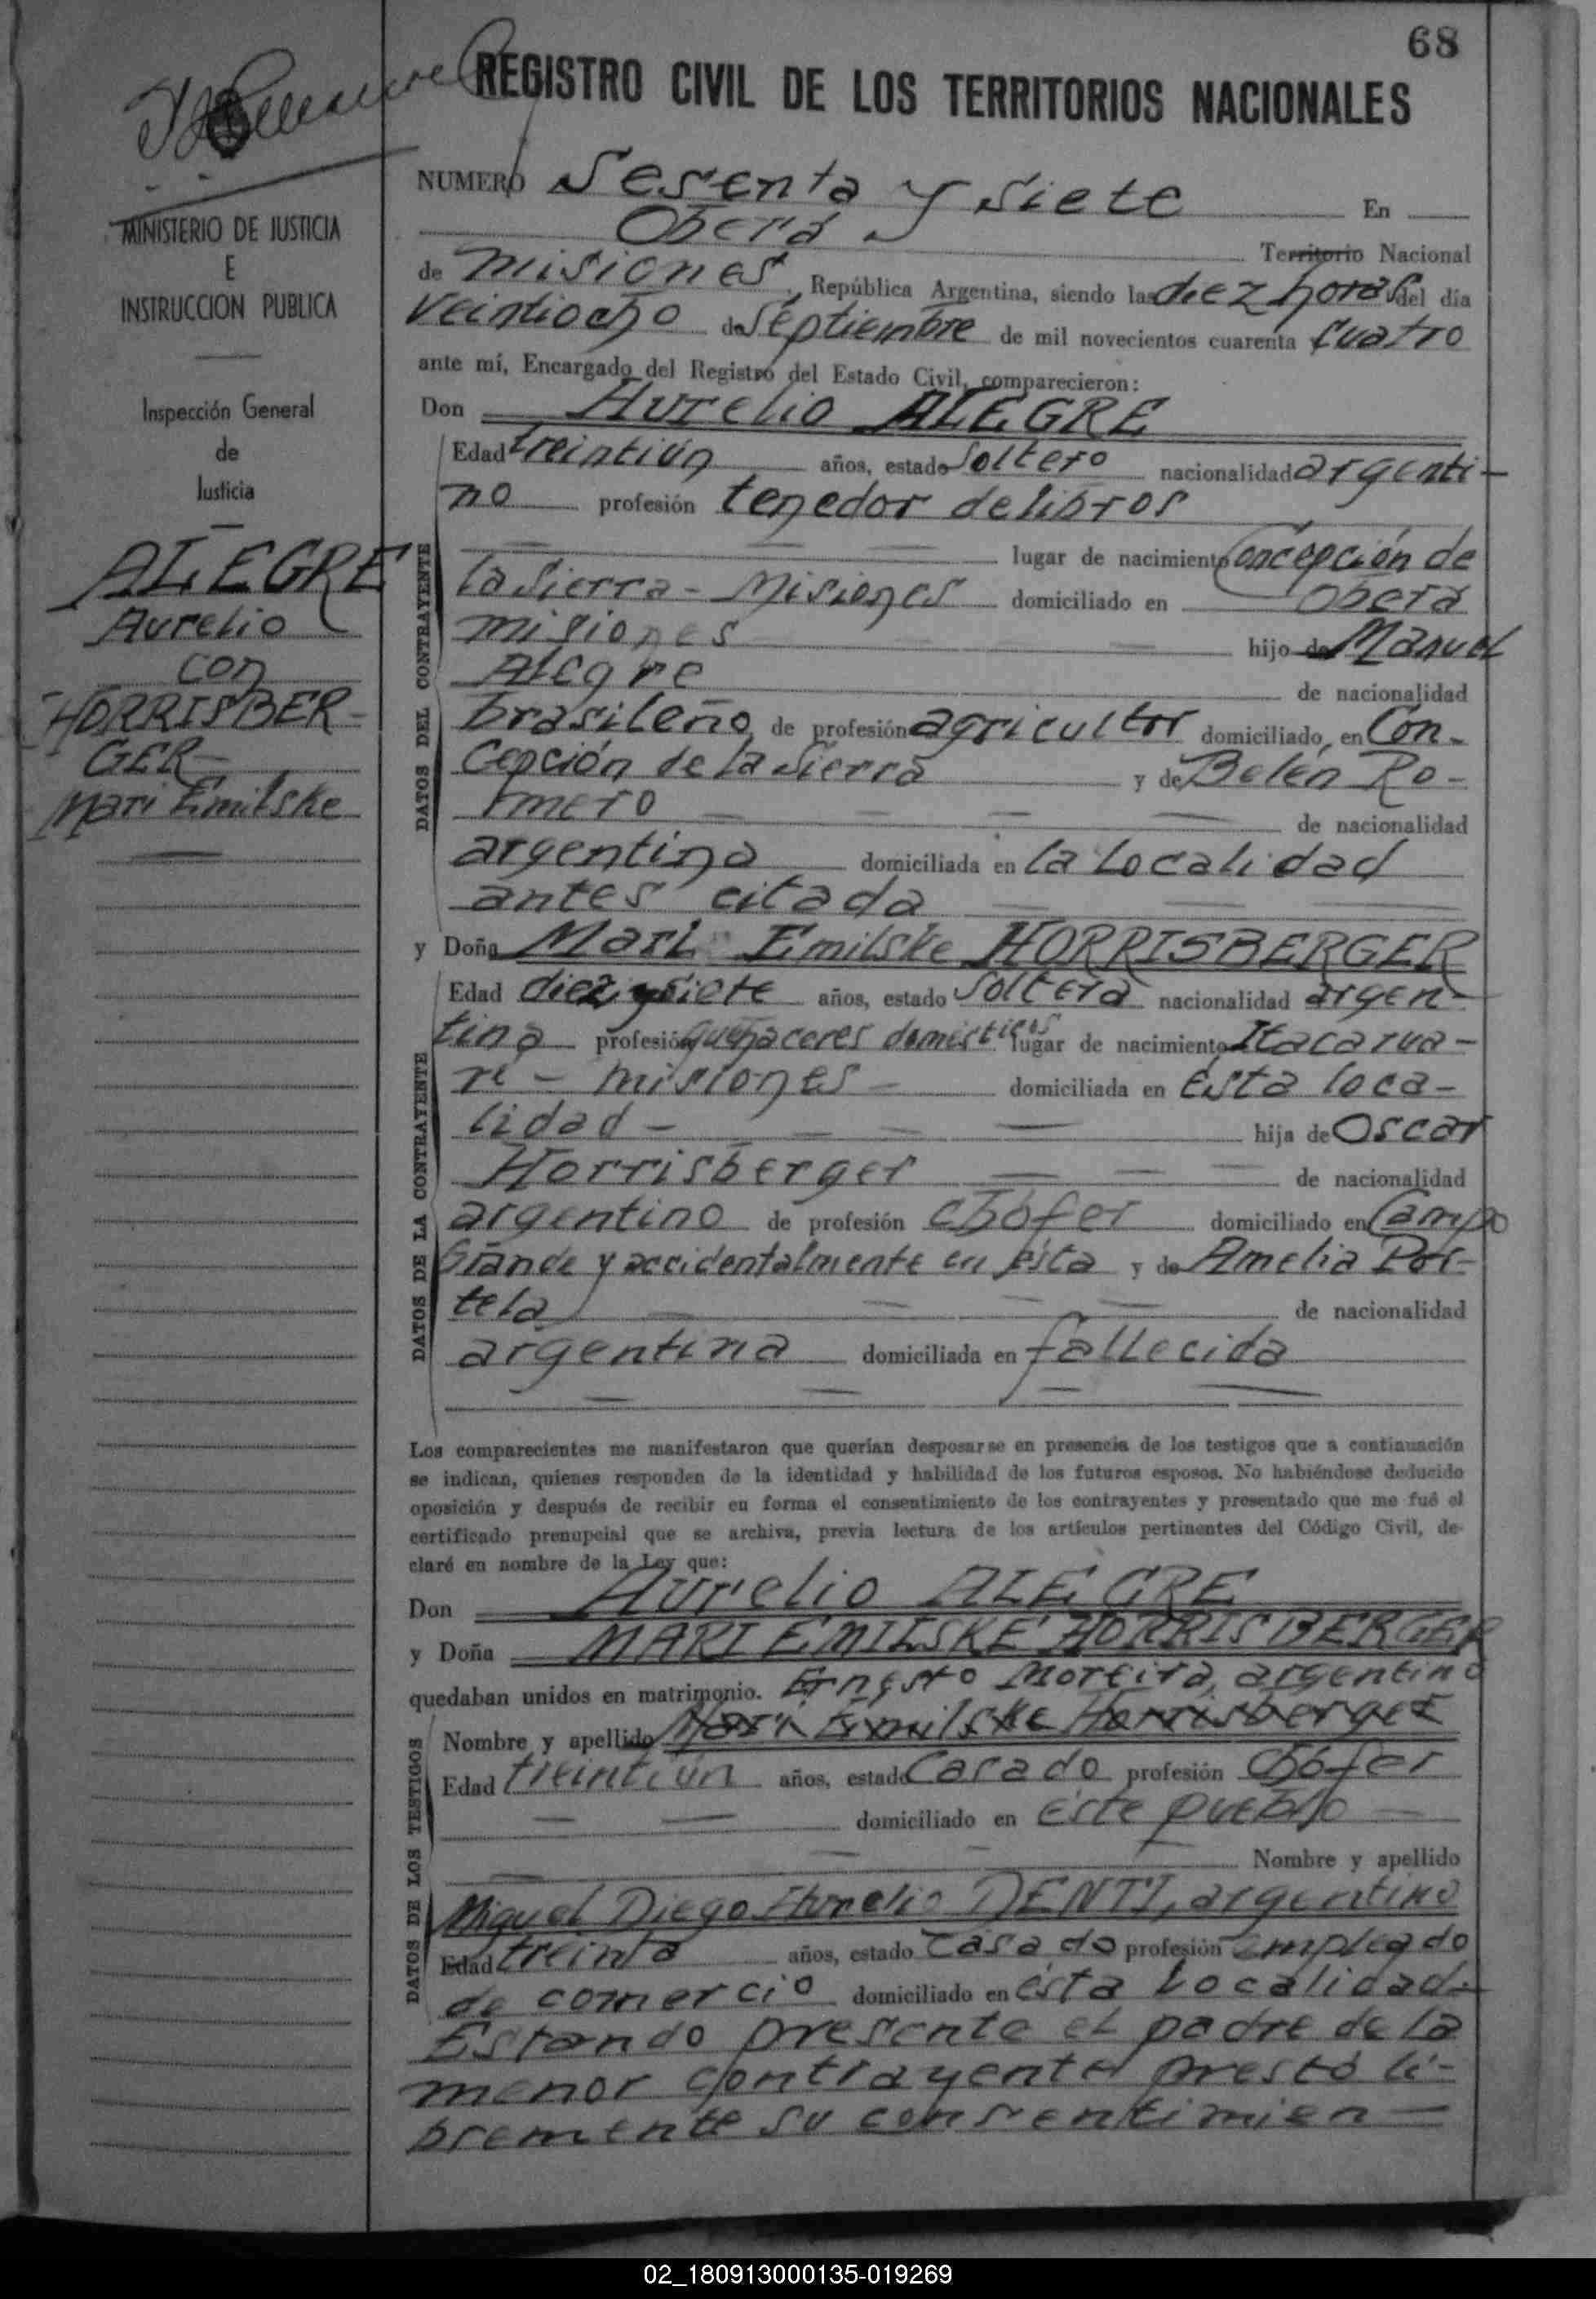 68
REGISTRO CIVIL DE LOS TERRITORIOS NACIONALES
MINISTERIO DE JUSTICIA
E
INSTRUCCION PUBLICA
Inspección General
de
Justicia
ALEGRE
Aurelio
con
HORRISBER-
GER-
Mari Emilske
NUMERO Sesenta y siete En
Oberá Territorio Nacional
de misiones, República Argentina, siendo las diez horas del día
veintiocho de septiembre de mil novecientos cuarenta y cuatro
ante mí, Encargado del Registro del Estado Civil, comparecieron:
Don Aurelio ALEGRE
DATOS DEL CONTRAYENTE
Edad treintiún años, estado soltero nacionalidad argenti-
no profesión tenedor de libros
lugar de nacimiento Concepción de
la Sierra - Misiones domiciliado en Oberá
misiones hijo de Manuel
Alegre de nacionalidad
brasileño, de profesión agricultor domiciliado en Con-
cepción de la Sierra y de Belén Ro-
mero de nacionalidad
argentina domiciliada en la localidad
antes citada
y Doña Mari Emilske HORRISBERGER
DATOS DE LA CONTRAYENTE
Edad diez y siete años, estado soltera nacionalidad argen-
tina profesión quehaceres domésticos lugar de nacimiento Itacarua-
ré - misiones - domiciliada en ésta loca-
lidad - hija de Oscar
Horrisberger de nacionalidad
argentino de profesión chófer domiciliado en Campo
Grande y accidentalmente en ésta y de Amelia Por-
tela de nacionalidad
argentina domiciliada en fallecida
Los comparecientes me manifestaron que querían desposarse en presencia de los testigos que a continuación
se indican, quienes responden de la identidad y habilidad de los futuros esposos. No habiéndose deducido
oposición y después de recibir en forma el consentimiento de los contrayentes y presentado que me fué el
certificado prenupcial que se archiva, previa lectura de los artículos pertinentes del Código Civil, de-
claré en nombre de la Ley que:
Don Aurelio ALEGRE
y Doña MARI EMILSKE HORRISBERGER
quedaban unidos en matrimonio. Ernesto Moreira, argentino
DATOS DE LOS TESTIGOS
Nombre y apellido Mari Emilske Horrisberger
Edad treintiún años, estado casado profesión chófer
domiciliado en éste pueblo
Nombre y apellido
Miguel Diego Aurelio DENTI, argentino
Edad treinta años, estado casado profesión empleado
de comercio domiciliado en ésta localidad.-
Estando presente el padre de la
menor contrayente prestó li-
bremente su consentimien-
02_180913000135-019269